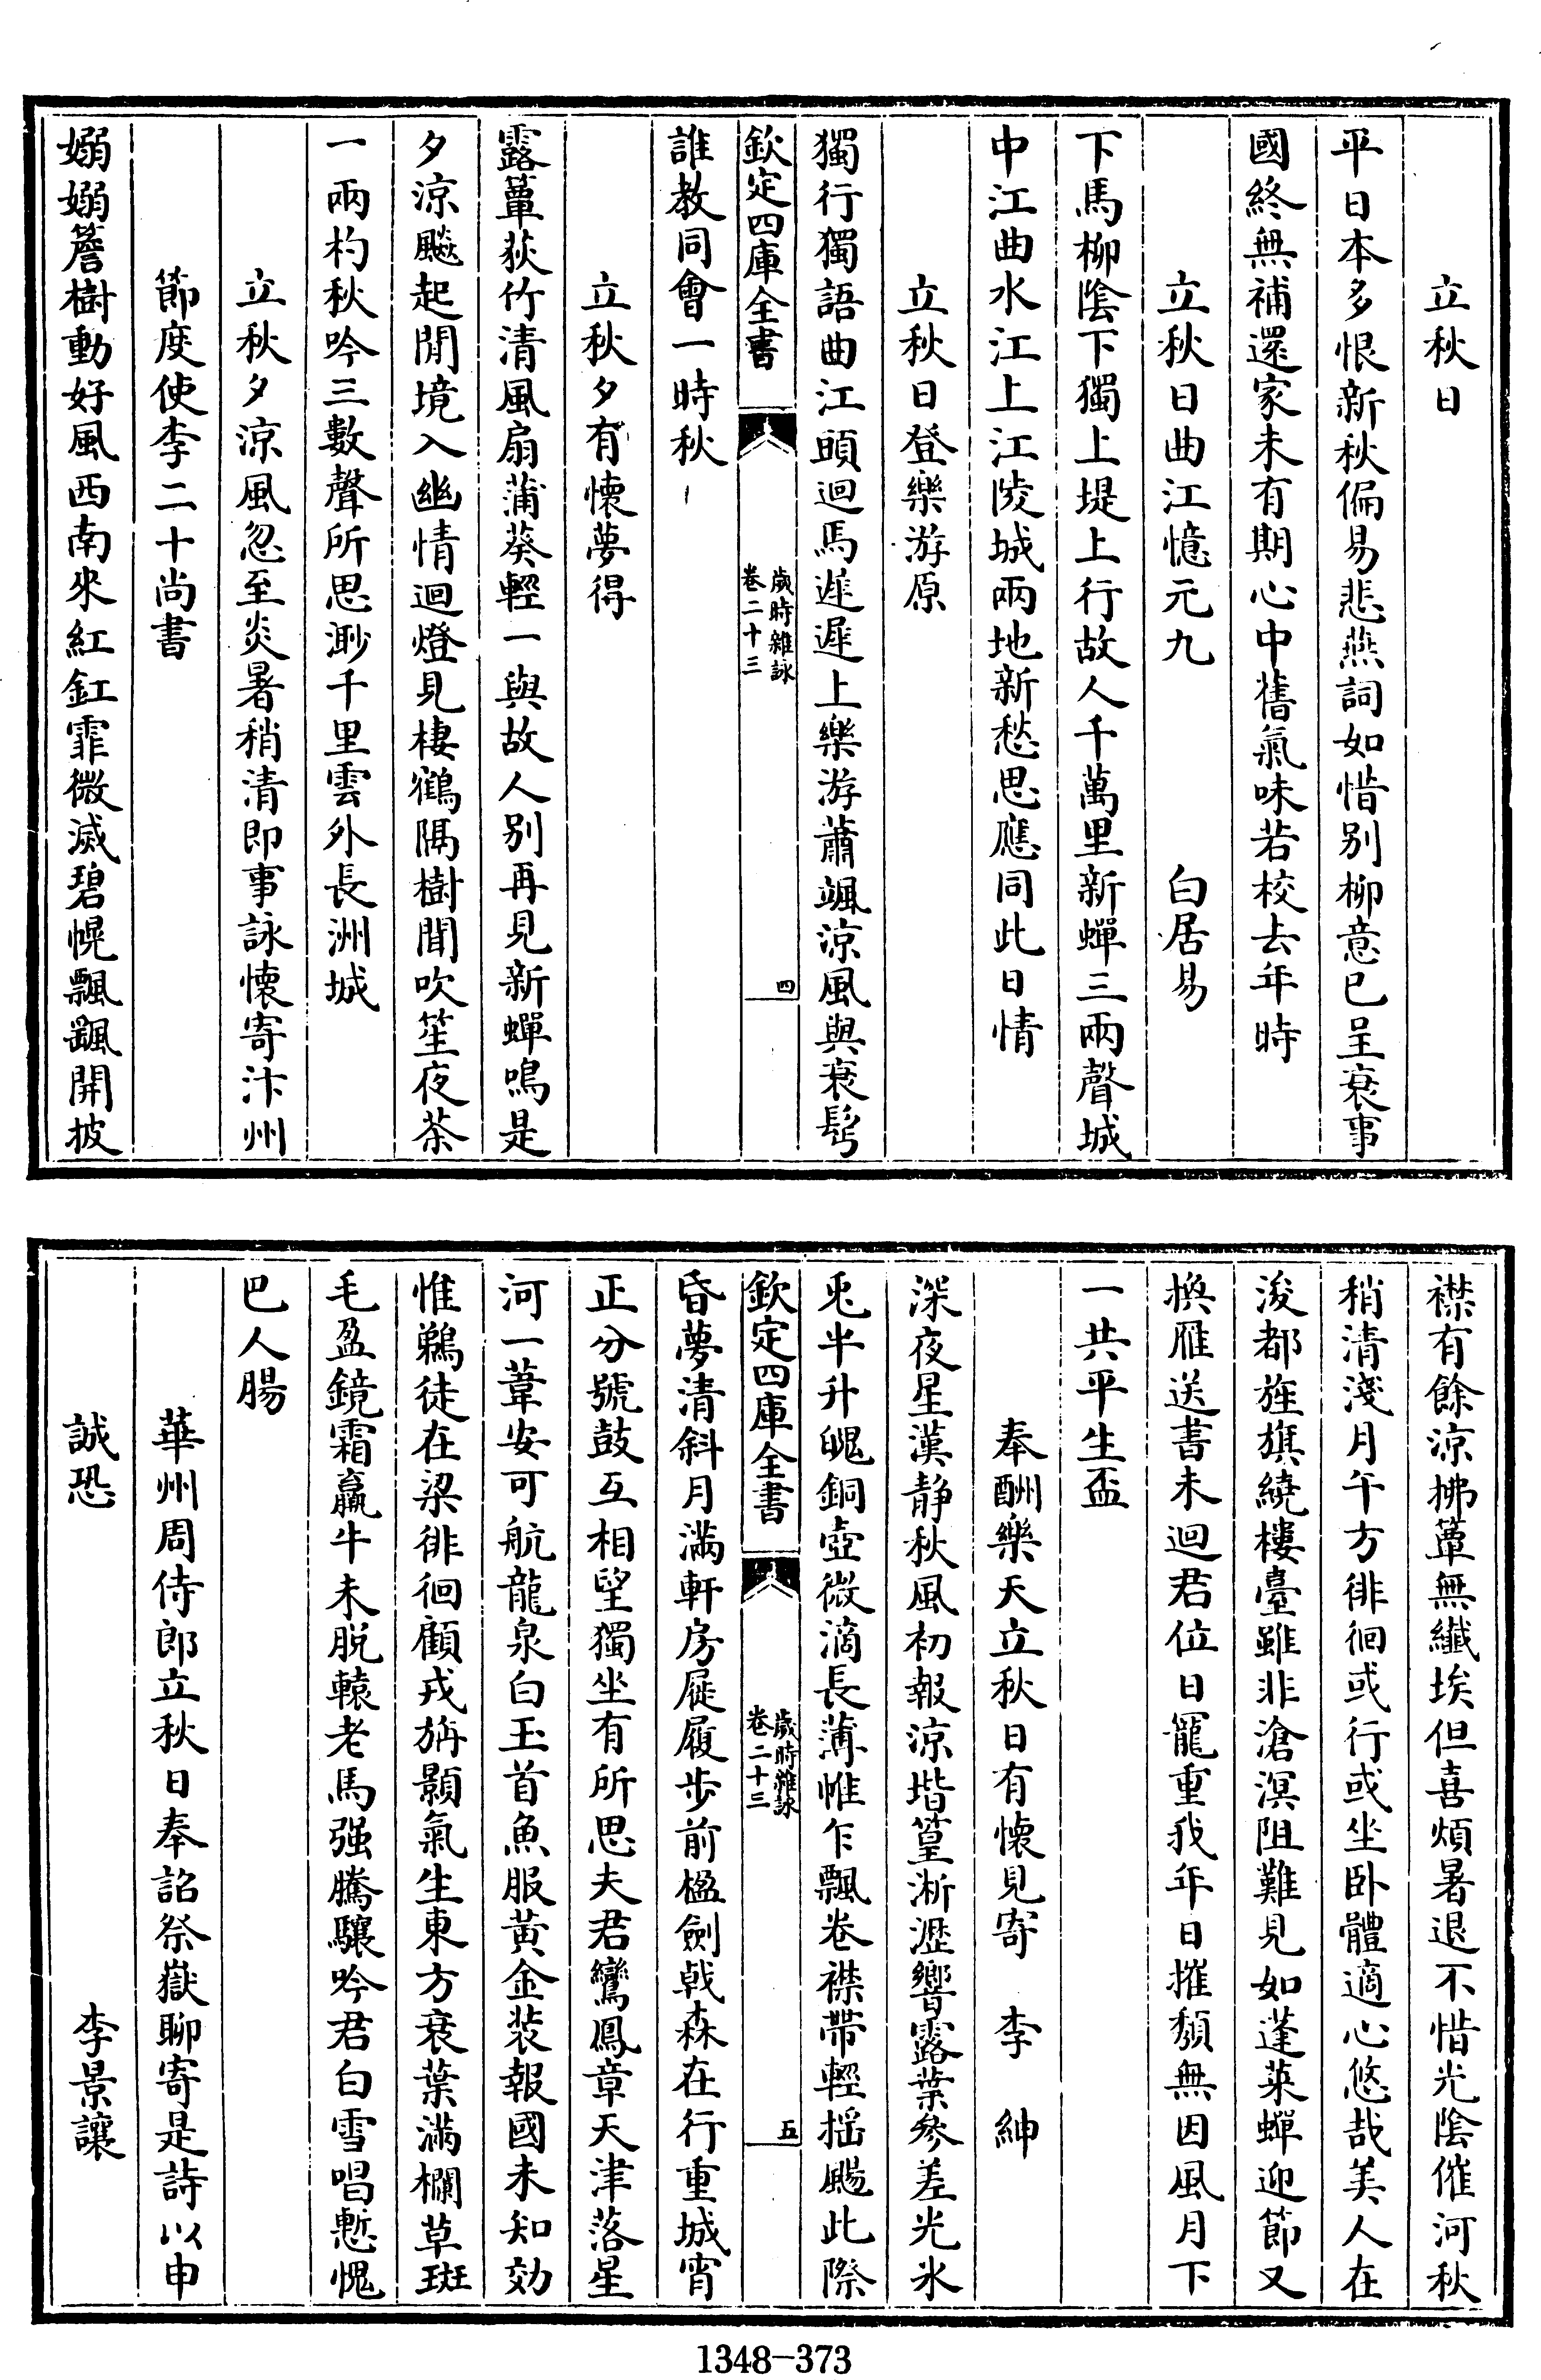 立秋日
平日本多恨新秋偏易悲燕詞如惜别柳意已呈衰事
國終無補還家未有期心中舊氣味若校去年時
立秋日曲江憶元九　白居易
下馬柳隂下獨上堤上行故人千萬里新蟬三兩聲城
中江曲水江上江陵城兩地新愁思應同此日情
立秋日登樂游原
獨行獨語曲江頭迴馬遲遲上樂游蕭颯涼風與衰鬢
欽定四庫全書　歲時雜詠卷二十三　四
誰教同會一時秋
立秋夕有懷夢得
露簟荻竹清風扇蒲葵輕一與故人别再見新蟬鳴是
夕涼飈起閒境入幽情迴燈見棲鶴隔樹聞吹笙夜茶
一兩杓秋吟三數聲所思渺千里雲外長洲城
立秋夕涼風忽至炎暑稍清即事詠懷寄汴州
節度使李二十尚書
嫋嫋簷樹動好風西南來紅釭霏微滅碧幌飄颻開披
襟有餘涼拂簟無纎埃但喜煩暑退不惜光隂催河秋
稍清淺月午方徘徊或行或坐卧體適心悠哉美人在
浚都旌旗繞樓臺雖非滄溟阻難見如蓬萊蟬迎節又
換雁送書未迴君位日寵重我年日摧頽無因風月下
一共平生盃
奉酬樂天立秋日有懷見寄　李紳
深夜星漢静秋風初報涼堦篁淅瀝響露葉參差光氷
兎半升魄銅壺微滴長薄帷乍飄卷襟帶輕揺颺此際
欽定四庫全書　歲時雜詠卷二十三　五
昏夢清斜月滿軒房屣履步前楹劍戟森在行重城宵
正分號鼓互相望獨坐有所思夫君鸞鳳章天津落星
河一葦安可航龍泉白玉首魚服黄金装報國未知効
惟鵜徒在梁徘徊顧戎旃顥氣生東方衰葉滿欄草斑
毛盈鏡霜羸牛未脱轅老馬强騰驤吟君白雪唱慙愧
巴人腸
華州周侍郎立秋日奉詔祭嶽聊寄是詩以申
誠恐　李景讓
1348-373